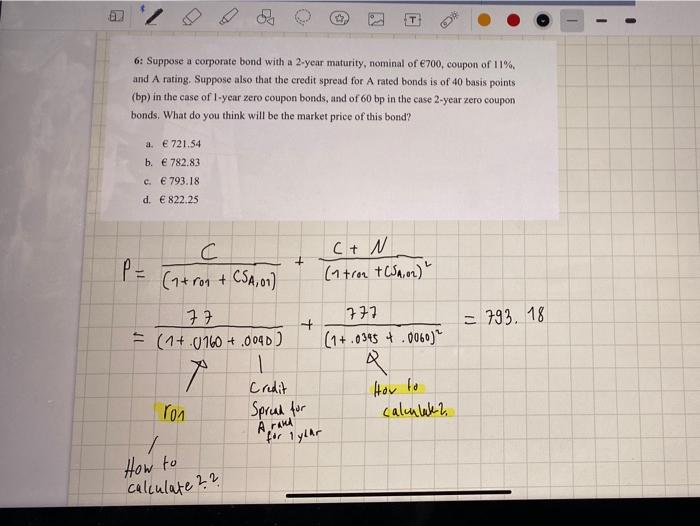 6: Suppose a corporate bond with a 2-year maturity, nominal of €700, coupon of 11%,
and A rating. Suppose also that the credit spread for A rated bonds is of 40 basis points
(bp) in the case of 1-year zero coupon bonds, and of 60 bp in the case 2-year zero coupon
bonds. What do you think will be the market price of this bond?
a. € 721.54
b. € 782.83
c. € 793.18
d. € 822.25
P = C / (1 + r01 + CSA,01) + C + N / (1 + r02 + CSA,02)²
= 77 / (1 + .0160 + .0040) + 777 / (1 + .0395 + .0060)² = 793.18
r01
Credit
Spread for
A rated
for 1 year
How to
calculate?
How to
calculate??